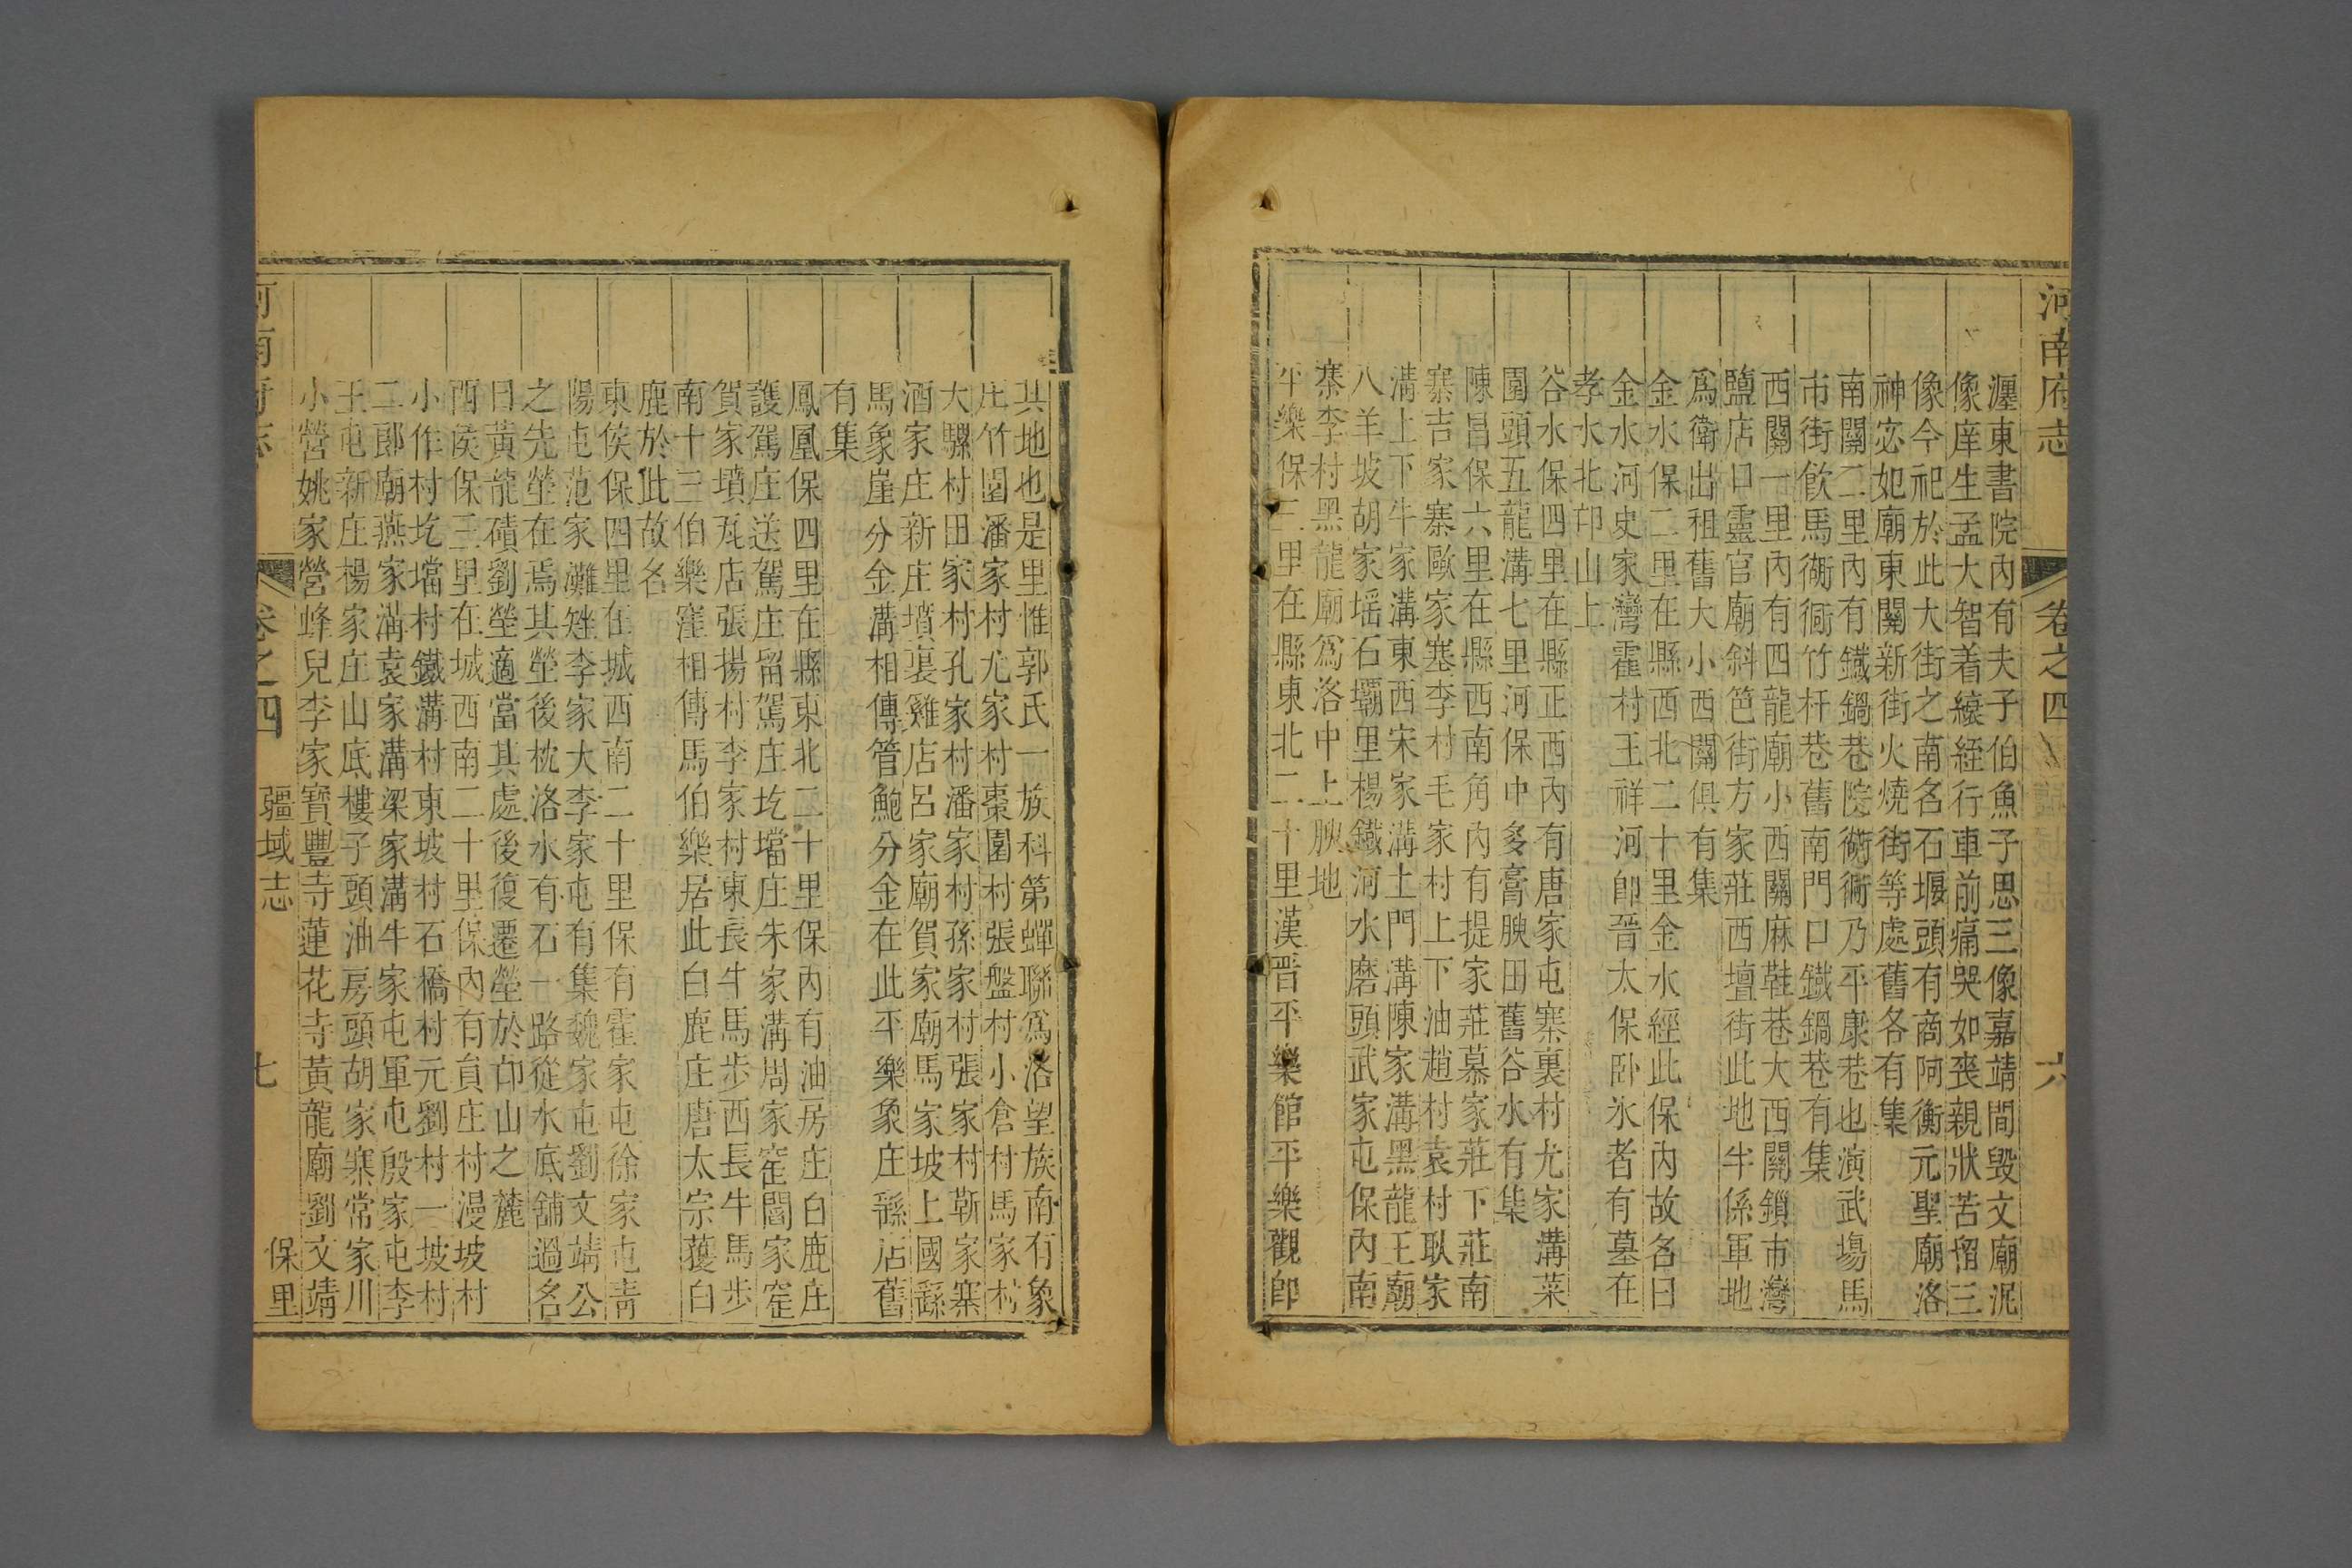 河南府志 卷之四 六
瀍東書院內有夫子伯魚子思三像嘉靖間毀文廟泥
像庠生孟大智着縗絰行車前痛哭如喪親狀苦留三
像今祀於此大街之南名石堰頭有商阿衡元聖廟洛
神宓妃廟東關新街火燒街等處舊各有集
南關二里內有鐵鍋巷院衚衕乃平康巷也演武場馬
市街飲馬衚衕竹杆巷舊南門口鐵鍋巷有集
西關一里內有四龍廟小西關麻鞋巷大西關鎖市灣
鹽店口靈官廟斜笆街方家莊西壇街此地牛係軍地
爲衛出祖舊大小西關俱有集
金水保二里在縣西北二十里金水經此保內故名曰
金水河史家灣霍村王祥河卽晉太保卧氷者有墓在
孝水北卬山上
谷水保四里在縣正西內有唐家屯寨裏村尤家溝菜
園頭五龍溝七里河保中多膏腴田舊谷水有集
陳昌保六里在縣西南角內有提家莊慕家莊下莊南
寨吉家寨歐家寨李村毛家村上下油趙村袁村耿家
溝上下牛家溝東西宋家溝土門溝陳家溝黑龍王廟
八羊坡胡家塢石壩里楊鐵河水磨頭武家屯保內南
寨李村黑龍廟爲洛中上腴地
平樂保三里在縣東北二十里漢晉平樂館平樂觀卽
其地也是里惟郭氏一族科第蟬聯爲洛望族南有象
庄竹園潘家村尤家村棗園村張盤村小倉村馬家村
大騾村田家村孔家村潘家村孫家村張家村靳家寨
酒家庄新庄墳裏雞店呂家廟賀家廟馬家坡上國繇
馬象崖分金溝相傳管鮑分金在此平樂象庄繇店舊
有集
鳳凰保四里在縣東北二十里保內有油房庄白鹿庄
護駕庄送駕庄留駕庄圪壋庄朱家溝周家窰閻家窰
賀家墳瓦店張揚村李家村東長牛馬步西長牛馬步
南十三伯樂窪相傳馬伯樂居此白鹿庄唐太宗獲白
鹿於此故名
東侯保四里在城西南二十里保有霍家屯徐家屯靑
陽屯范家灘矬李家大李家屯有集魏家屯劉文靖公
之先塋在焉其塋後枕洛水有石一路從水底舖過名
曰黃龍磧劉塋適當其處後復遷塋於卬山之麓
西侯保三里在城西南二十里保內有負庄村漫坡村
小作村圪壋村鐵溝村東坡村石橋村元劉村一坡村
二郎廟燕家溝袁家溝梁家溝牛家屯軍屯殷家屯李
王屯新庄楊家庄山底樓子頭油房頭胡家寨常家川
小營姚家營峰兒李家寶豐寺蓮花寺黃龍廟劉文靖
河南府志 卷之四 疆域志 七 保里